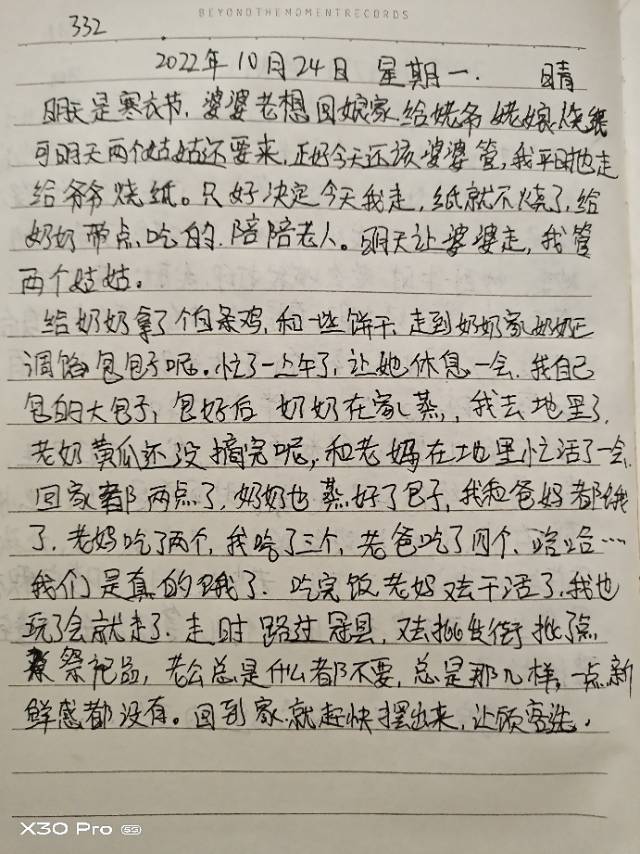 BEYONDTHEMOMENTRECORDS
332
2022年10月24日 星期一. 晴
明天是寒衣节,婆婆老想回娘家给姥爷姥娘烧纸
可明天两个姑姑还要来,正好今天还该婆婆管,我平时也走
给爷爷烧纸。只好决定今天我走,纸就不烧了,给
奶奶带点吃的.陪陪老人。明天让婆婆走,我管
两个姑姑。
给奶奶拿了个白条鸡,和一些饼干,走到奶奶家奶奶正
调馅包包子呢。忙了一上午了,让她休息一会.我自己
包的大包子,包好后 奶奶在家蒸,我去地里了,
老奶黄瓜还没摘完呢,和老妈在地里忙活了一会,
回家都两点了,奶奶也蒸好了包子,我和爸妈都饿
了.老妈吃了两个,我吃了三个,老爸吃了四个、哈哈…
我们是真的饿了.吃完饭老妈又去干活了,我也
玩了会就走了.走时路过冠县,又去批发街批了点
祭祀品,老公总是什么都不要,总是那几样,一点新
鲜感都没有。回到家就赶快摆出来,让顾客选.
X30 Pro 5G